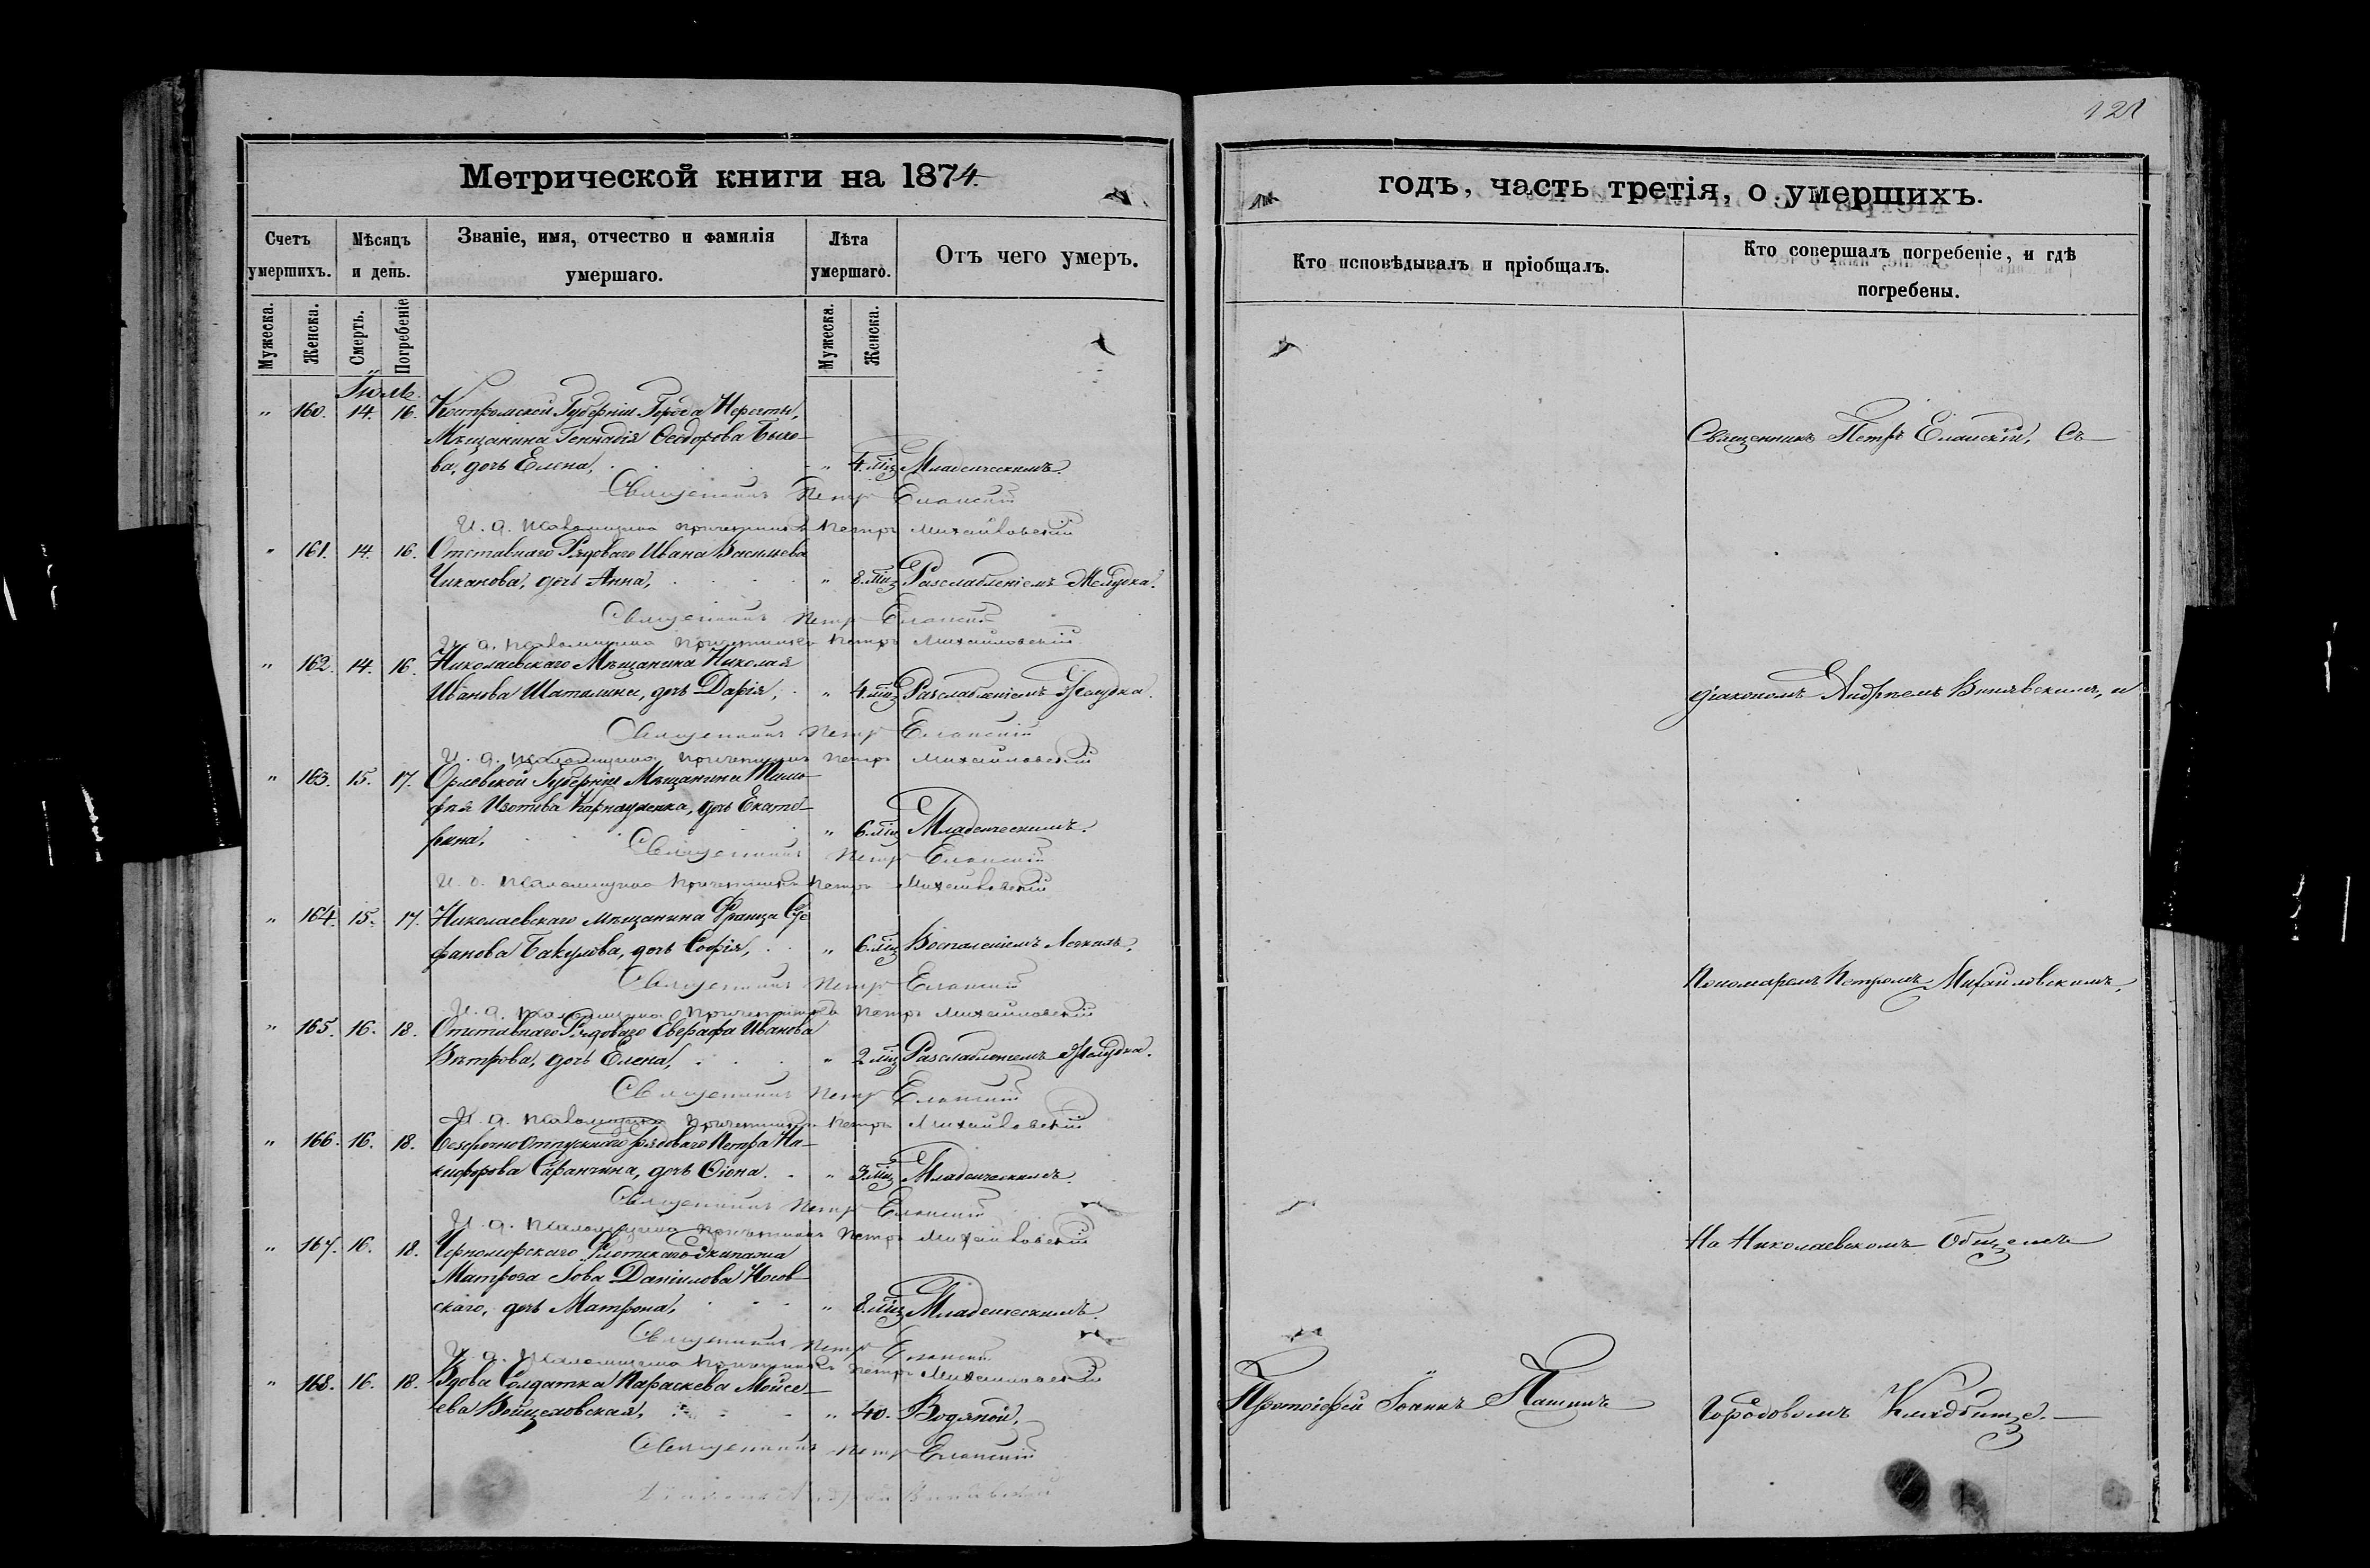 121
Метрической книги на 1874
годъ, часть третія, о умершихъ.
Счетъ умершихъ.
Мѣсяцъ и день.
Званіе, имя, отчество и фамилія умершаго.
Лѣта умершаго.
Отъ чего умеръ.
Кто исповѣдывалъ и пріобщалъ.
Кто совершалъ погребеніе, и гдѣ погребены.
Мужеска. Женска. Смерть. Погребеніе Мужеска. Женска.
Іюль.
" 160. 14. 16. Костромской Губерніи Города Нерехты,
Мѣщанина Геннадія Ѳеодорова Быко-
ва, дочь Елена, " 4. міц Младенческимъ.
Священникъ Петръ Еланскій
И. д. псаломщика причетникъ Петръ Михайловскій
" 161. 14. 16. Отставнаго Рядоваго Ивана Васильева
Чиканова, дочь Анна, " 8. міц Разслабленіемъ Желудка.
Священникъ Петръ Еланскій
И. д. псаломщика причетникъ Петръ Михайловскій
" 162. 14. 16. Николаевскаго Мѣщанина Николая
Иванова Шаталина, дочь Дарія, " 4. міц Разслабленіемъ Желудка.
Священникъ Петръ Еланскій
И. д. псаломщика причетникъ Петръ Михайловскій
" 163. 15. 17. Орловской Губерніи Мѣщанина Тимо-
фея Изотова дочь Екате-
рина, " 6. міц Младенческимъ.
Священникъ Петръ Еланскій
И. д. псаломщика причетникъ Петръ Михайловскій
" 164. 15. 17. Николаевскаго мѣщанина Франца
фанова Бакулова, дочь Софія, " 6. міц Воспаленіемъ Легкихъ.
Священникъ Петръ Еланскій
И. д. псаломщика причетникъ Петръ Михайловскій
" 165. 16. 18. Отставнаго Рядоваго Иванова
Вѣтрова, дочь Елена, " 2 міц Разслабленіемъ Желудка.
Священникъ Петръ Еланскій
И. д. псаломщика причетникъ Петръ Михайловскій
" 166. 16. 18. Безсрочноотпускнаго рядоваго Петра Ни-
кифорова Саранчина, дочь Ѳіона. " 3. міц Младенческимъ.
Священникъ Петръ Еланскій
И. д. псаломщика причетникъ Петръ Михайловскій
" 167. 16. 18. Черноморскаго Флотскаго Экипажа
Матроса Іова Даніилова Носов-
скаго, дочь Матрона, " 8. міц Младенческимъ.
Священникъ Петръ Еланскій
И. д. псаломщика причетникъ Петръ Михайловскій
" 168. 16. 18. Вдова Солдатка Параскева Мойсе-
ева " 40. Водяной.
Священникъ Петръ Еланскій
Протоіерей Іоаннъ
Священникъ Петръ Еланскій, Съ
діакономъ Андреемъ и
Пономаремъ Петромъ Михайловскимъ,
На Николаевскомъ Общемъ
Городовомъ Кладбищѣ.